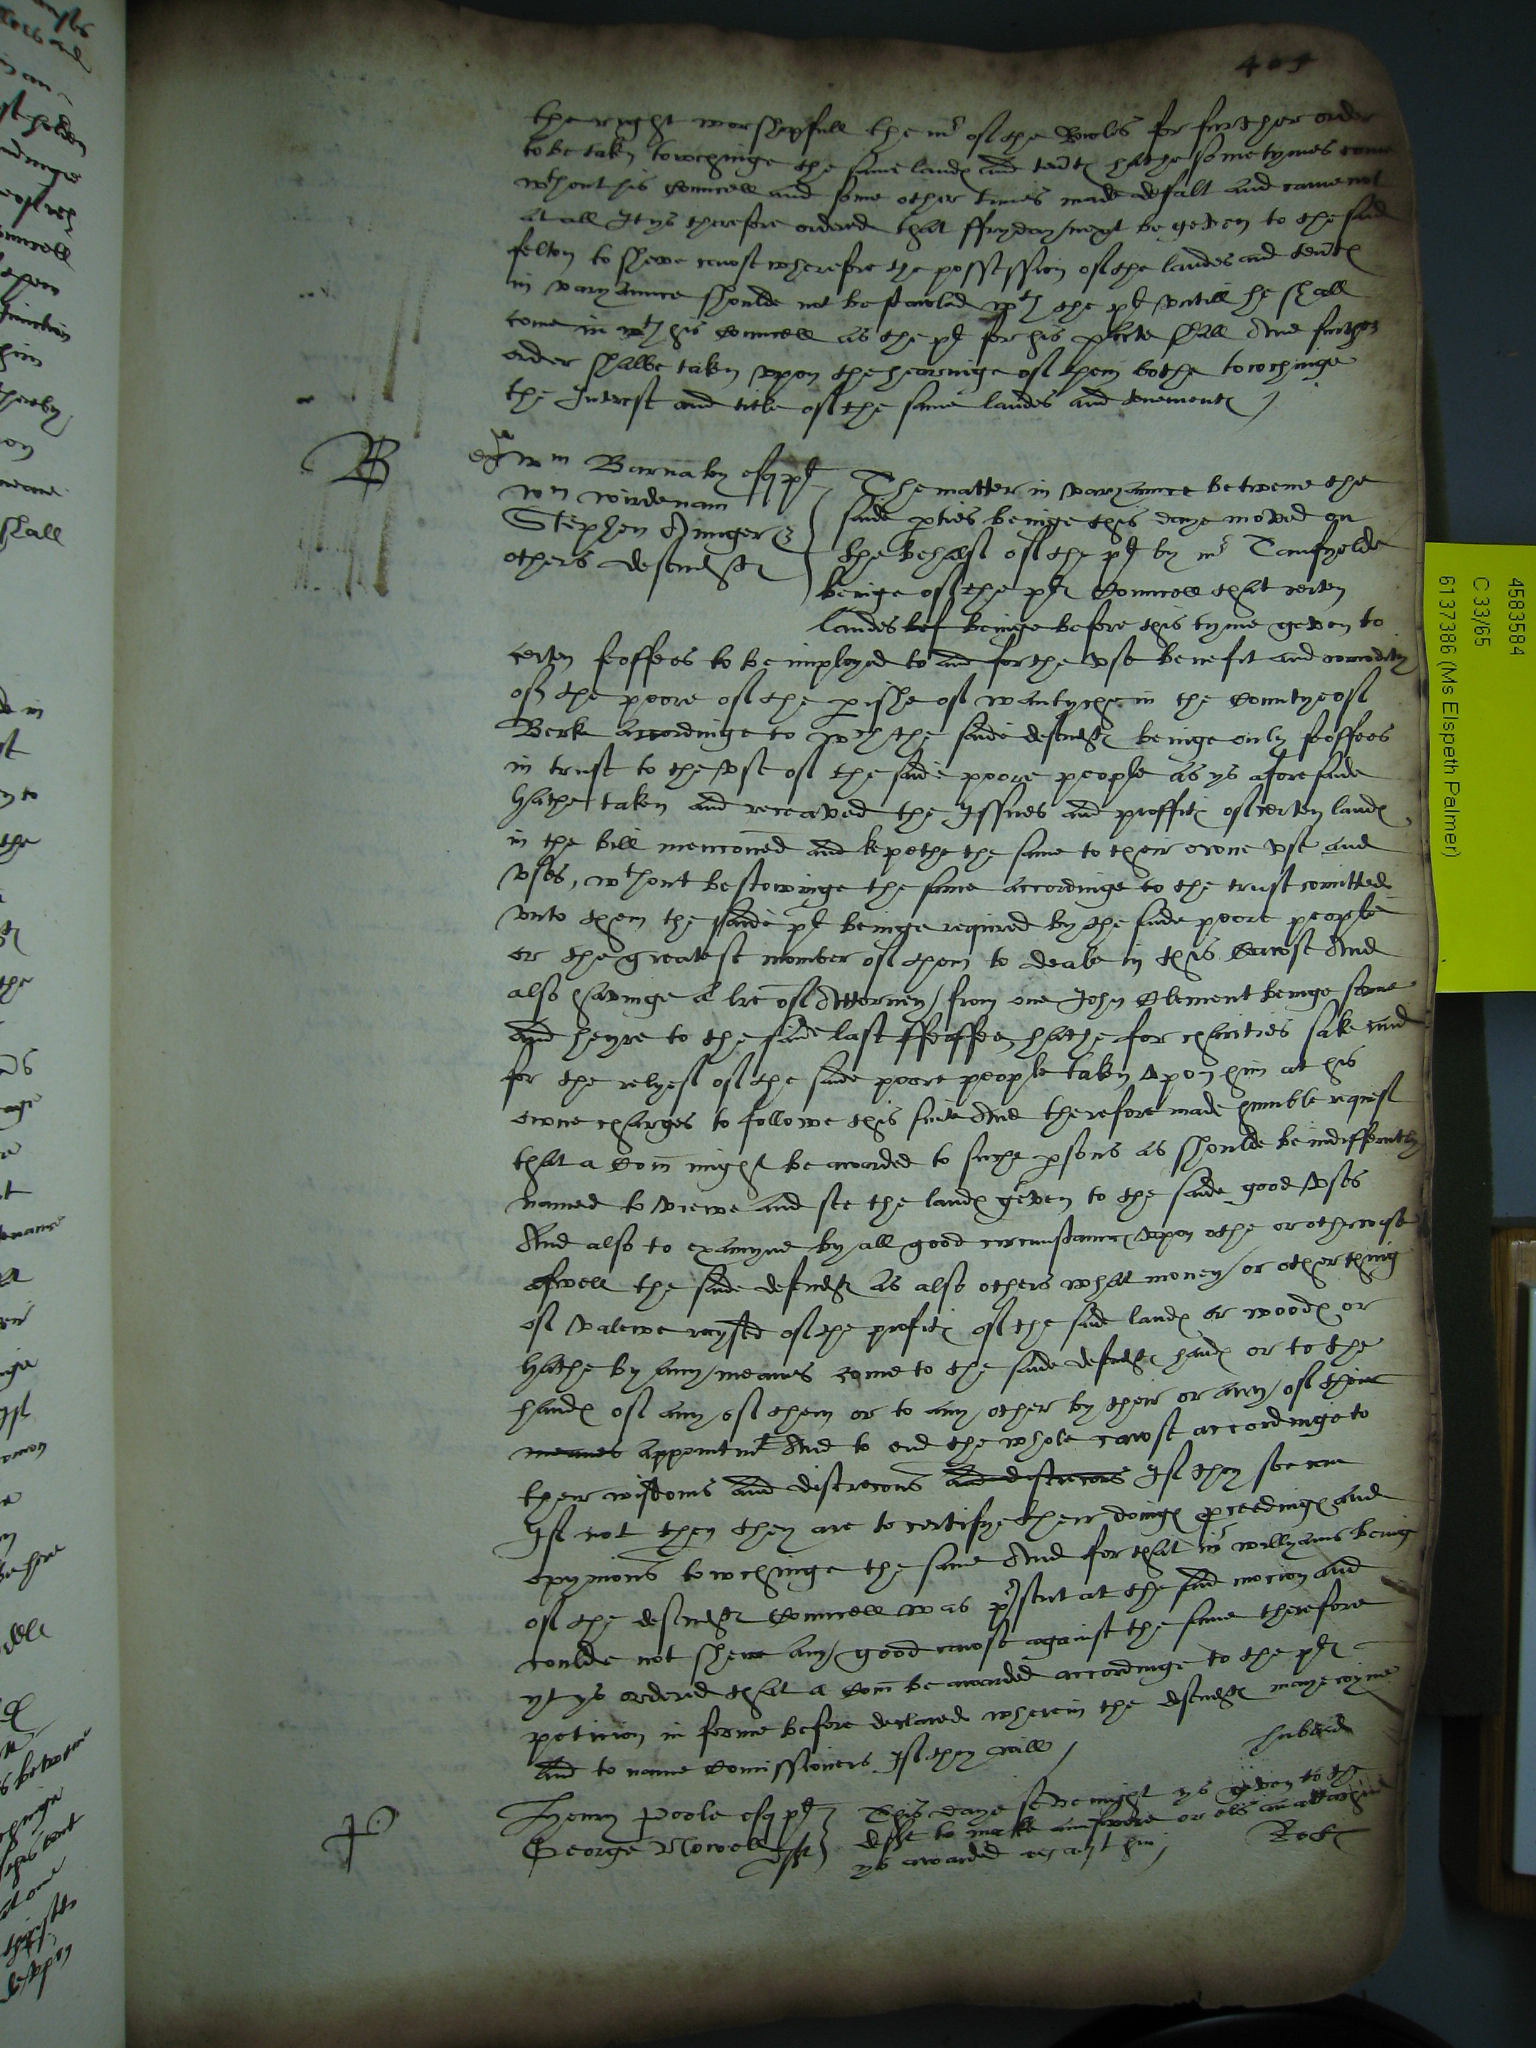 409
the right worshipfull the mr of the Rooles for further order
to be taken towchinge the same landℯ and tentℯ hathe sometymes come
wthout his Councell and some other times made defalt and came not
at all It ys therefore ordered that ffryday next be geven to the said
felton to shewe cawse wherefore the possession of the landes and tentℯ
in varyaunce shoulde not be stawled wth the pl vntill he shall
come in wth his Councell as the pl for his parte shall And further
order shalbe taken vpon the hearinge of them bothe towchinge
the Interest and title of the same landes and tenementℯ
B
Wm Barnaby esq pl
Wm Wirdenam
Stephen Amger &
others defendtℯ
The matter in varyaunce betwene the
saide pties beinge this daye moved on
the behalf of the pl by mr Tanfyelde
beinge of the plℯ Councell that certen
landes bef beinge before this tyme geven to
certen feoffees to be imployed to and for the vse benefit and comodity
of the poore of the pishe of wantyche in the Countye of
Berk accordinge to wch the saide defendtℯ beinge only feoffees
in trust to the vse of the saide poore people as ys aforesaide
hathe taken and receaved the Issues and proffitℯ of certen landℯ
in the bill mencioned and kepethe the same to their owne vse and
vses, wthout bestowinge the same accordinge to the trust comitted
vnto them the saide pl beinge required by the saide poore people
or the greatest nomber of them to deale in this Cawse And
also havinge a lre of Attorney from one John Clement beinge sonne
and heyre to the saide last ffeoffee hathe for charities sake and
for the relyef of the saide poore people taken vpon him at his
owne charges to followe this suite And therefore made humble request
that a Com might be awarded to suche psons as shoulde be indifferently
named to viewe and see the landℯ geven to the saide good vses
And also to examyne by all good circumstancℯ vpon othe or otherwyse
aswell the saide defendtℯ as also others what money or other thing
of valewe raysed of the profitℯ of the said landℯ or woodℯ or
hathe by any meanes come to the saide defendtℯ handℯ or to the
handℯ of any of them or to any other by their or any of their
meanes appointmt And to end the whole cawse accordinge to
their wisdoms and discrecons and discrecons If they see cawse
If not then they are to certifye their doingℯ pceedingℯ and
opynions towchinge the same And for that mr willyams being
of the defendtℯ Councell was psent at the said mocion and
coulde not shewe any good cawse against the same therefore
yt ys ordered that a Com be awarded accordinge to the plℯ
peticion in forme before declared wherein the defendtℯ maye ioyne
and to name Comissioners If they will
P
Henry Poole esq pl
George Nowell dfft
This daye sevenight ys geven to the
dfft to make answere or els an attachmt
ys awarded agaynst him